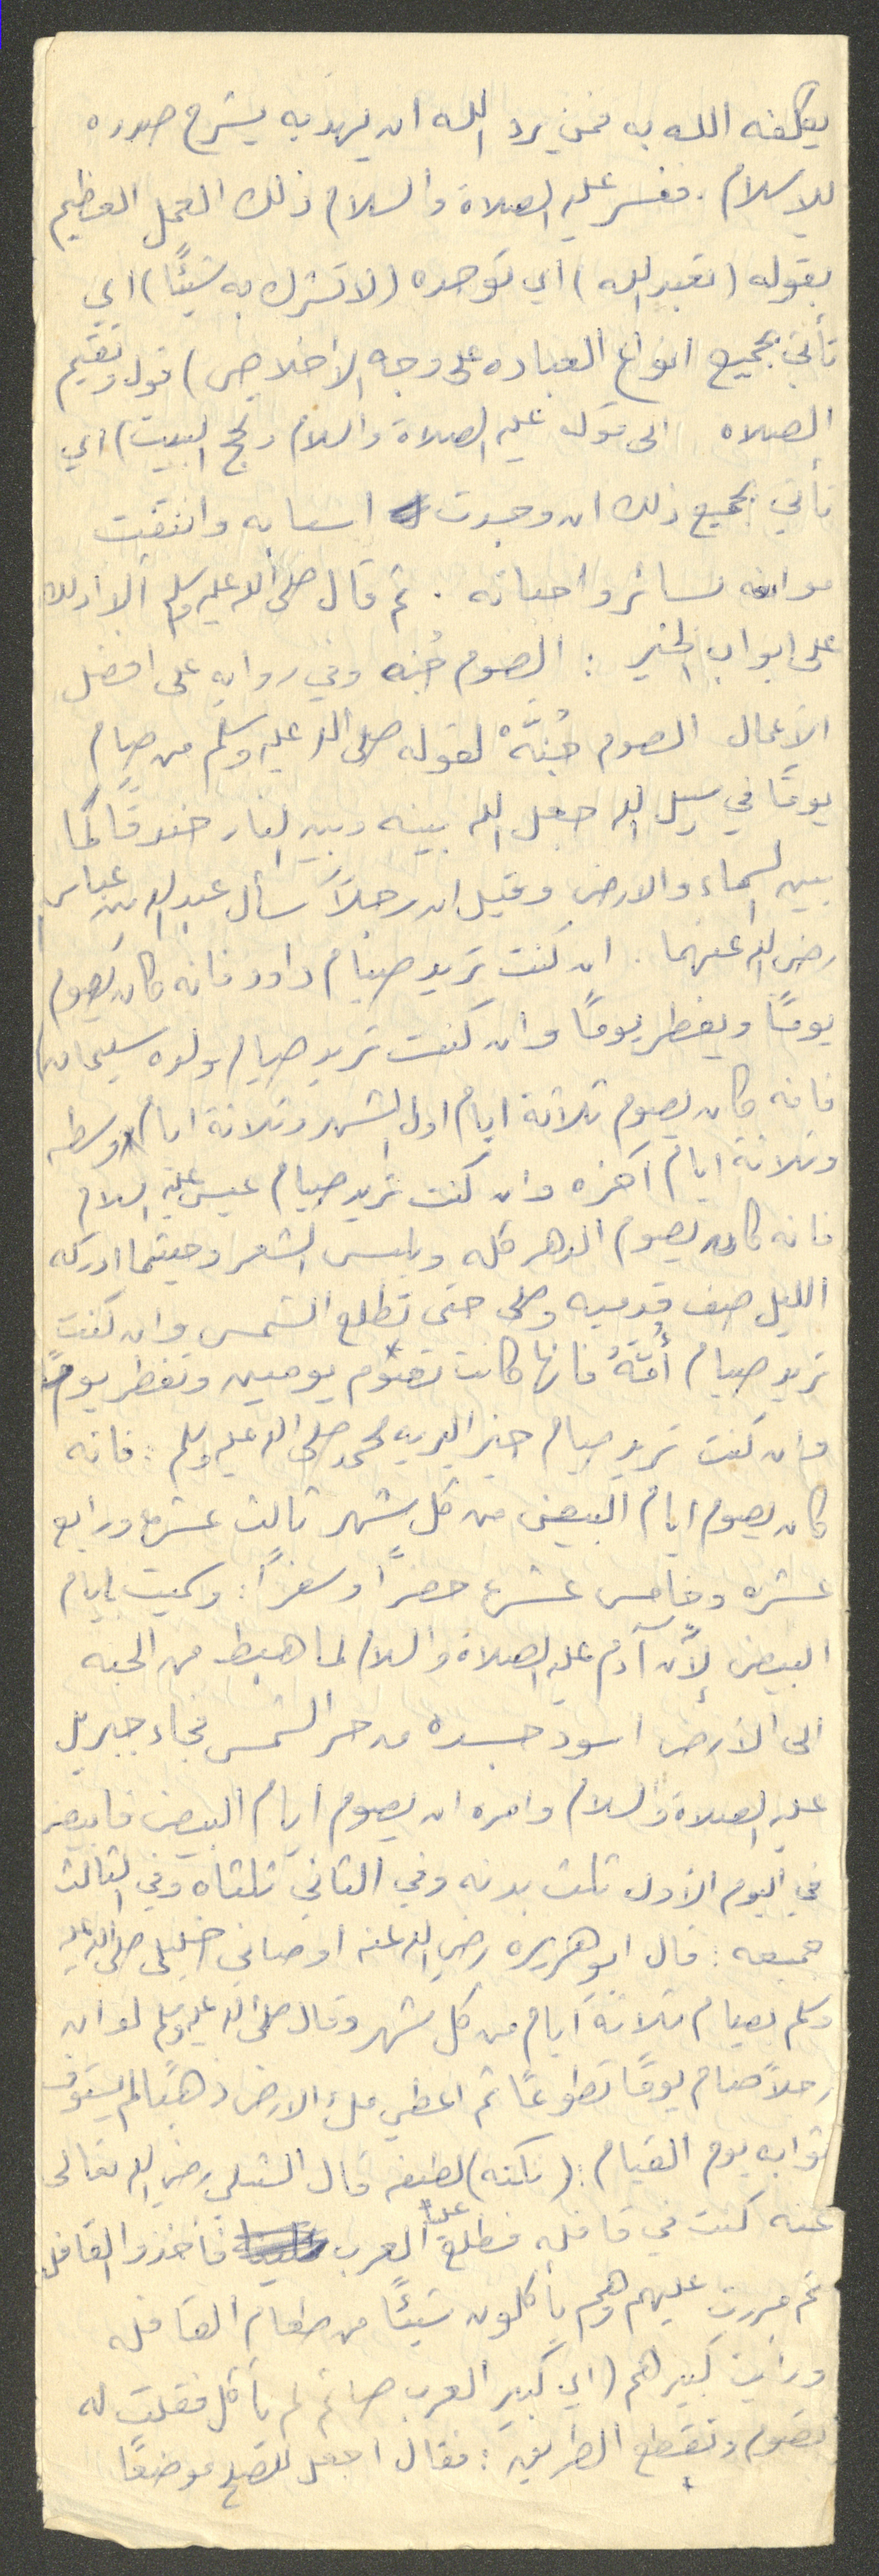 يكلفه الله به فمن يرد الله ان يهديه يشرح صدره
للاسلام. ففسر عليه الصلاة والسلام ذلك العمل العظيم
بقوله (تعبد الله) اي توحده (لا تشرك به شيئًا) اي
تأتي بجميع انواع العباده على وجه الاخلاص) قوله وتقيم
الصلاه الى قوله عليه الصلاة والسلام وتحج البيت) اي
تأتي بجميع ذلك ان وجدت اسبابه وانتفت
موانعه بسائر واجباته. ثم قال صلى الله عليه وسلم ألا ادلك
على ابواب الخير: الصوم جُنه وفي روايه على افضل
الأعمال الصوم جُنَّهْ لقوله صلى الله عليه وسلم من صام
يومًا في سبيل الله جعل الله بينه وبين النار خندقًا كما
بين السماء والارض وقيل ان رجلاً سأل عبد الله بن عباس
رضي الله عنهما. ان كنت تريد صيام داود فانه كان يصوم
يومًا ويفطر يومًا وان كنت تريد صيام ولده سليمان
فانه كان يصوم ثلاثة ايام اول الشهر وثلاثة ايام وسطه
وثلاثة ايام آخره وان كنت تريد صيام عيسى عليه السلام
فانه كان يصوم الدهر كله ويلبس الشعر وحيثما ادركه
الليل صف قدميه وصلى حتى تطلع الشمس وان كنت
تريد صيام أُمّهُ فانها كانت تصوم يومين وتفطر يومًا
وان كنت تريد صيام خير البريه محمد صلى الله عليه وسلم: فانه
كان يصوم ايام البيض من كل شهر ثالث عشره ورابع
عشره وخامس عشره حضرًا وسفرًا: وسميت بايام
البيض لأن آدم عليه الصلاة والسلام لما هبط من الجنه
الى الأرض اسود جسده من حر الشمس فجاء جبريل
عليه الصلاة والسلام وامره ان يصوم ايام البيض فابيض
في اليوم الأول ثلث بدنه وفي الثاني ثلثاه وفي الثالث
جميعه: قال ابو هريره رضي الله عنه اوصاني خليلي صلى الله عليه
وسلم بصيام ثلاثة أيام من كل شهر وقال صلى الله عليه وسلم لو ان
رجلاً صام يومًا تطوعًا ثم اعطي ملء الارض ذهبًا لم يستوف
ثوابه يوم القيام: (نكته) لطيفه قال الشبلي رضي الله تعالى
عنه كنت في قافله فطلع علينا العرب فأخذوا القافله
ثم مررت عليهم وهم يأكلون شيئًا من طعام القافله
ورأيت كبيرهم (اي كبير العرب صائم لم يأكل فقلت له
تصوم وتقطع الطريق: فقال اجعل للصلح موضعًا